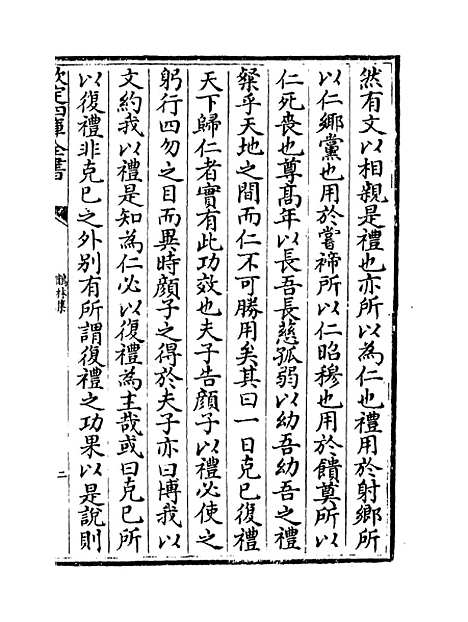 然有文以相親是禮也亦所以為仁也禮用於射鄉所
以仁鄉黨也用於嘗禘所以仁昭穆也用於饋奠所以
仁死喪也尊髙年以長吾長慈孤弱以幼吾幼吾之禮
粲乎天地之間而仁不可勝用矣其曰一日克已復禮
天下歸仁者實有此功效也夫子告顔子以禮必使之
躬行四勿之目而異時顔子之得於夫子亦曰博我以
文約我以禮是知為仁必以復禮為主哉或曰克已所
以復禮非克已之外别有所謂復禮之功果以是說則
欽定四庫全書
鶴林集
二